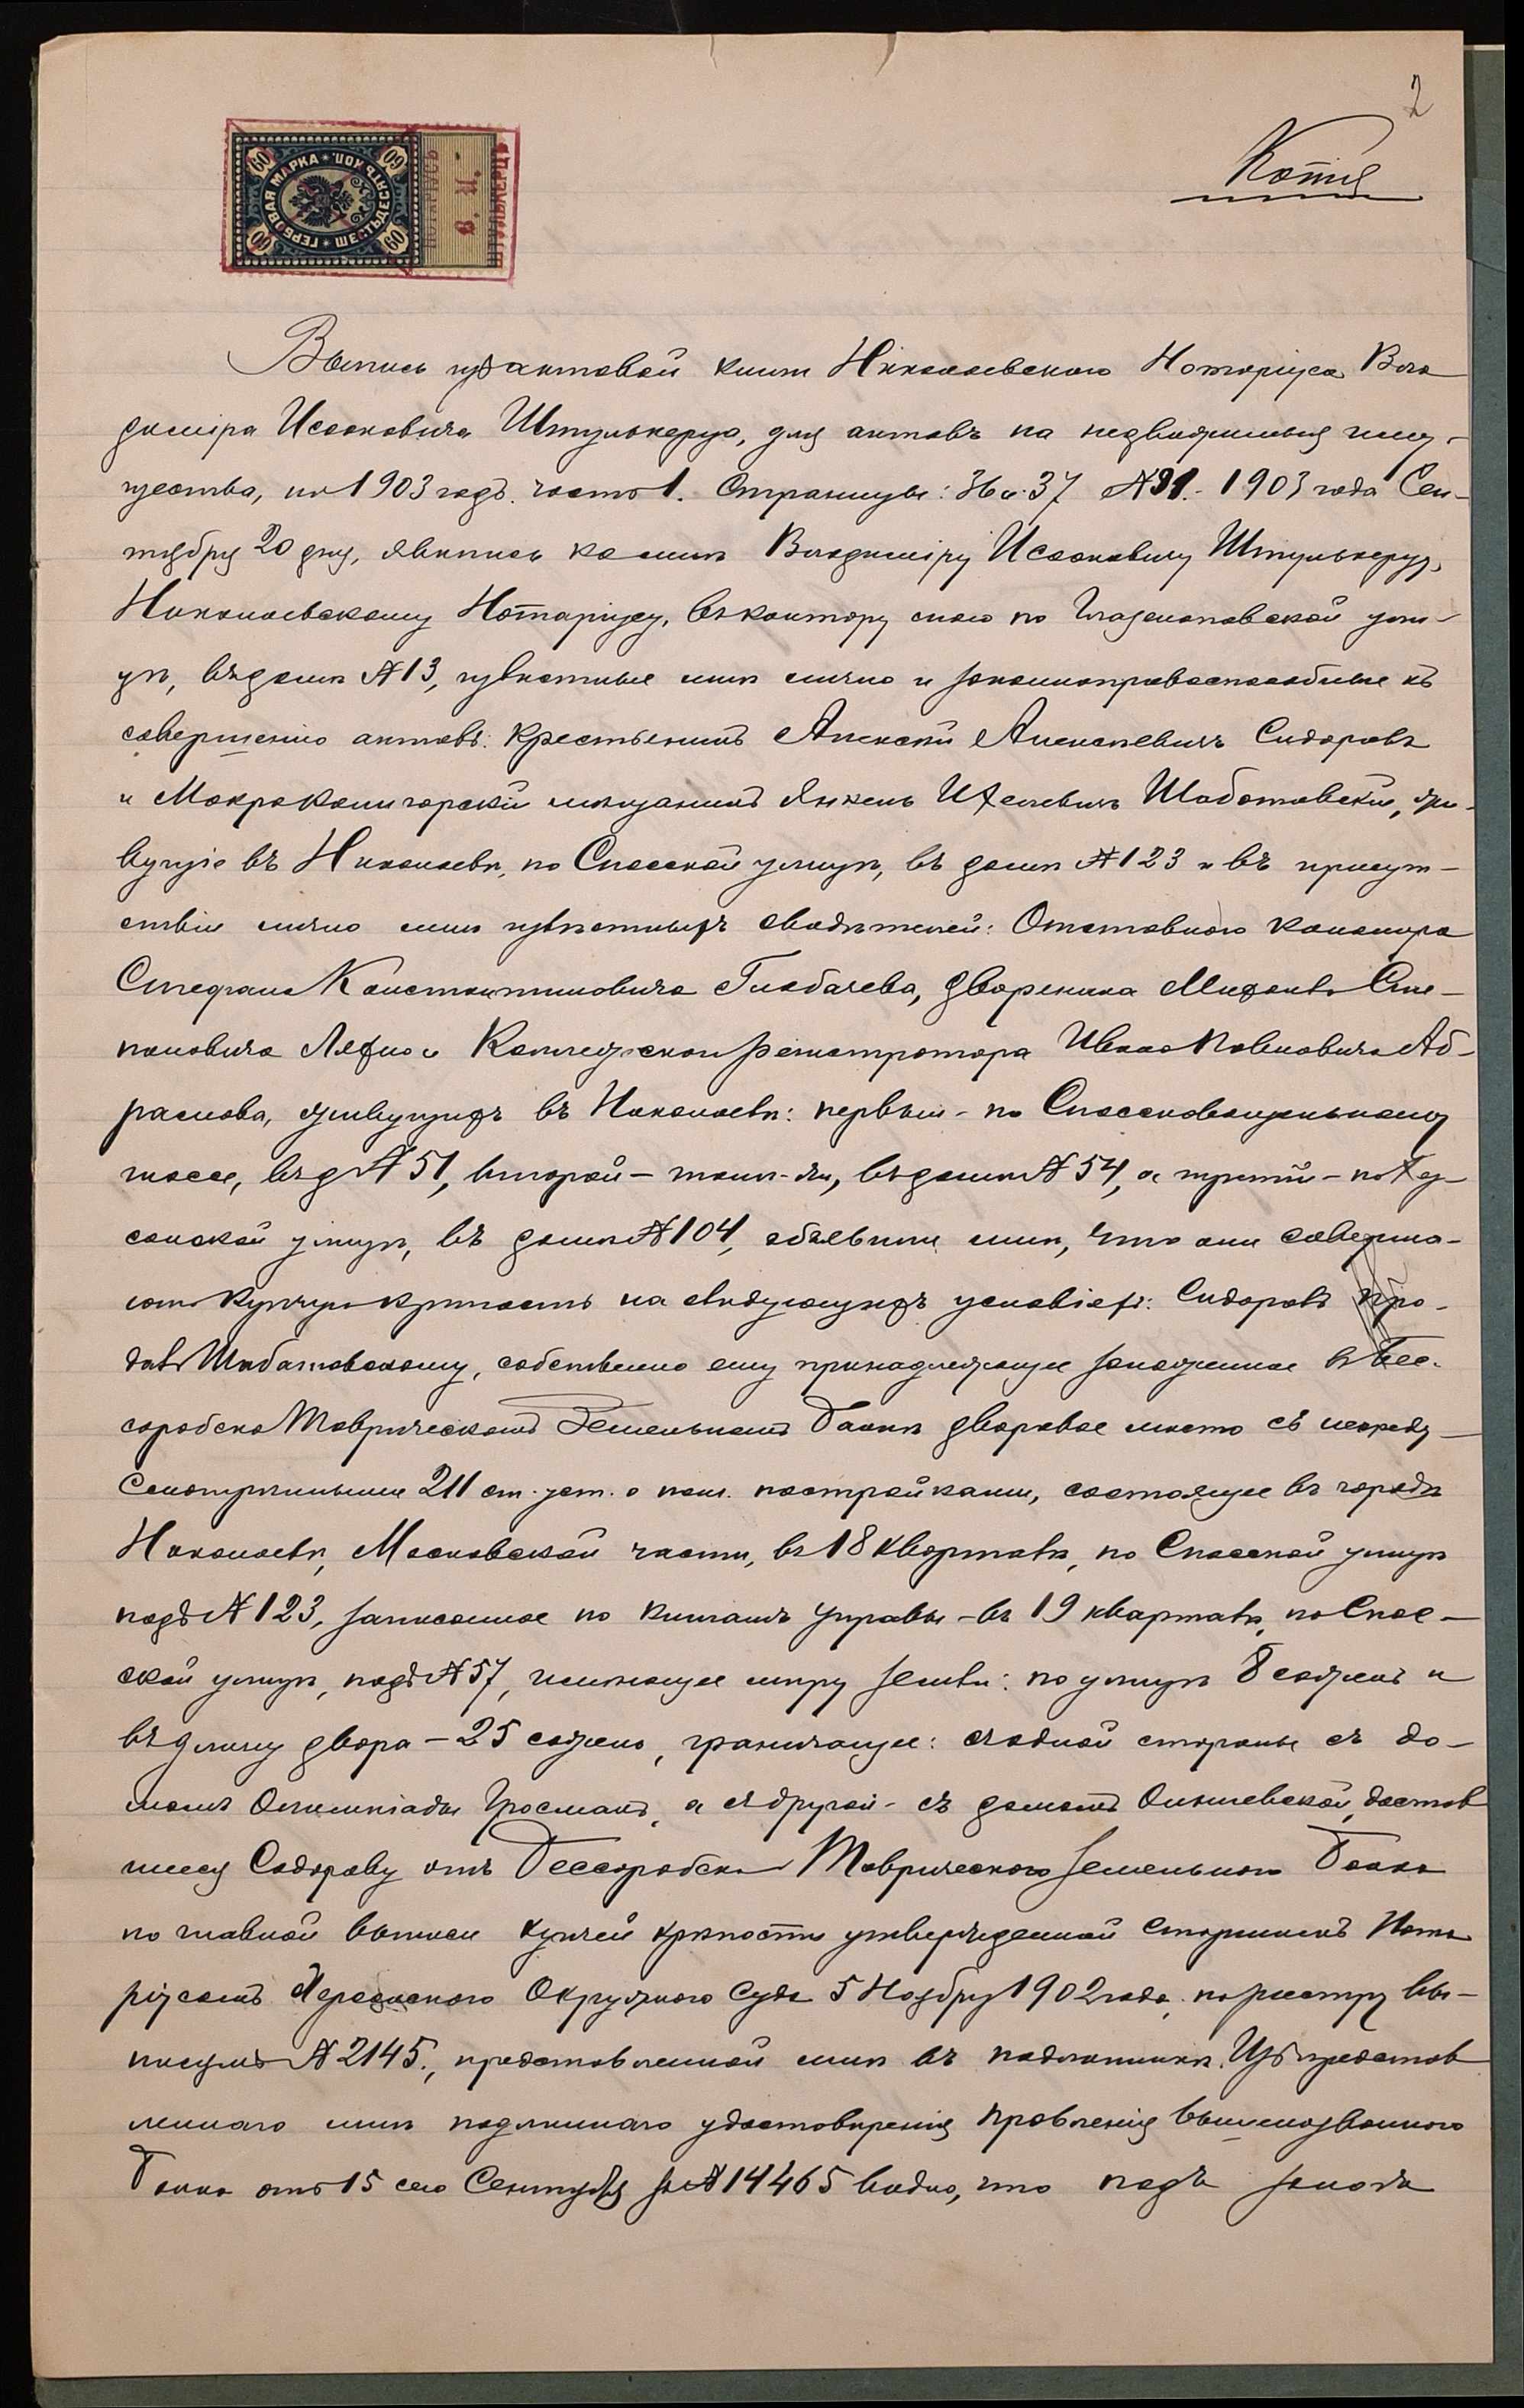 2
Копія
ГЕРБОВАЯ МАРКА ШЕСТЬДЕСЯТЪ КОП.
60 60 60 60
НОТАРІУСЪ
В. И.
ШТУЛЬКЕРЦЪ
Выпись изъ актовой книги Николаевскаго Нотаріуса Вла
диміра Исааковича Штулькерца, для актовъ на недвижимыя иму-
щества, на 1903 годъ. часть 1. Страницы: 36 и 37 № 91. 1903 года Сен-
тября 20 дня, явились ко мнѣ Владиміру Исааковичу Штулькерцу,
Николаевскому Нотаріусу, въ контору мою по Глазенаповской ули-
цѣ, въ домѣ № 13, извѣстные мнѣ лично и законноправоспособные къ
совершенію актовъ: крестьянинъ Алексѣй Алексѣевичъ Сидоровъ
и Мокрокалигорскій мѣщанинъ Янкель Ицелевичъ Шабатовскій, жи-
вущіе въ Николаевѣ, по Спасской улицѣ, въ домѣ № 123 и въ присут-
ствіи лично мнѣ извѣстныхъ свидѣтелей: Отставного канонира
Стефана Константиновича Глобачева, дворянина Михаила Сте-
пановича и Коллежскаго Регистратора Ивана Павловича Аб-
рамова, живущихъ въ Николаевѣ: первый - по
шоссе, въ д № 51, второй - тамъ-же, въ домѣ № 54, а третій - по Хер-
сонской улицѣ, въ домѣ № 104, объявили мнѣ, что они соверша-
ютъ купчую крѣпость на слѣдующихъ условіяхъ: Сидоровъ про-
далъ Шабатовскому, собственно ему принадлежащее заложенное въ Бес-
сарабско Таврическомъ Земельномъ Банкѣ дворовое мѣсто съ непреду-
смотрѣнными 211 ст. уст. о пошл. постройками, состоящее въ городѣ
Николаевѣ, Московской части, въ 18 кварталѣ, по Спасской улицѣ
подъ № 123, записанное по книгамъ Управы - въ 19 кварталѣ, по Спас-
ской улицѣ, подъ № 57, имѣющее мѣру земли: по улицѣ 8 сажень и
въ длину двора - 25 сажень, граничащее: съ одной стороны съ до-
момъ Олимпіады Гросманъ, а съ другой - съ домомъ, достав
шееся Сидорову отъ Бессарабско Таврическаго Земельнаго Банка
по главной выписи купчей крѣпости утвержденной старшимъ Нота
ріусомъ Херсонскаго Окружного Суда 5 Ноября 1902 года, по реестру вы-
писямъ № 2145, представленной мнѣ въ подлинникѣ. Изъ представ
леннаго мнѣ подлиннаго удостовѣренія Правленія вышеназваннаго
Банка отъ 15 сего Сентября за № 14465 видно, что подъ залогъ